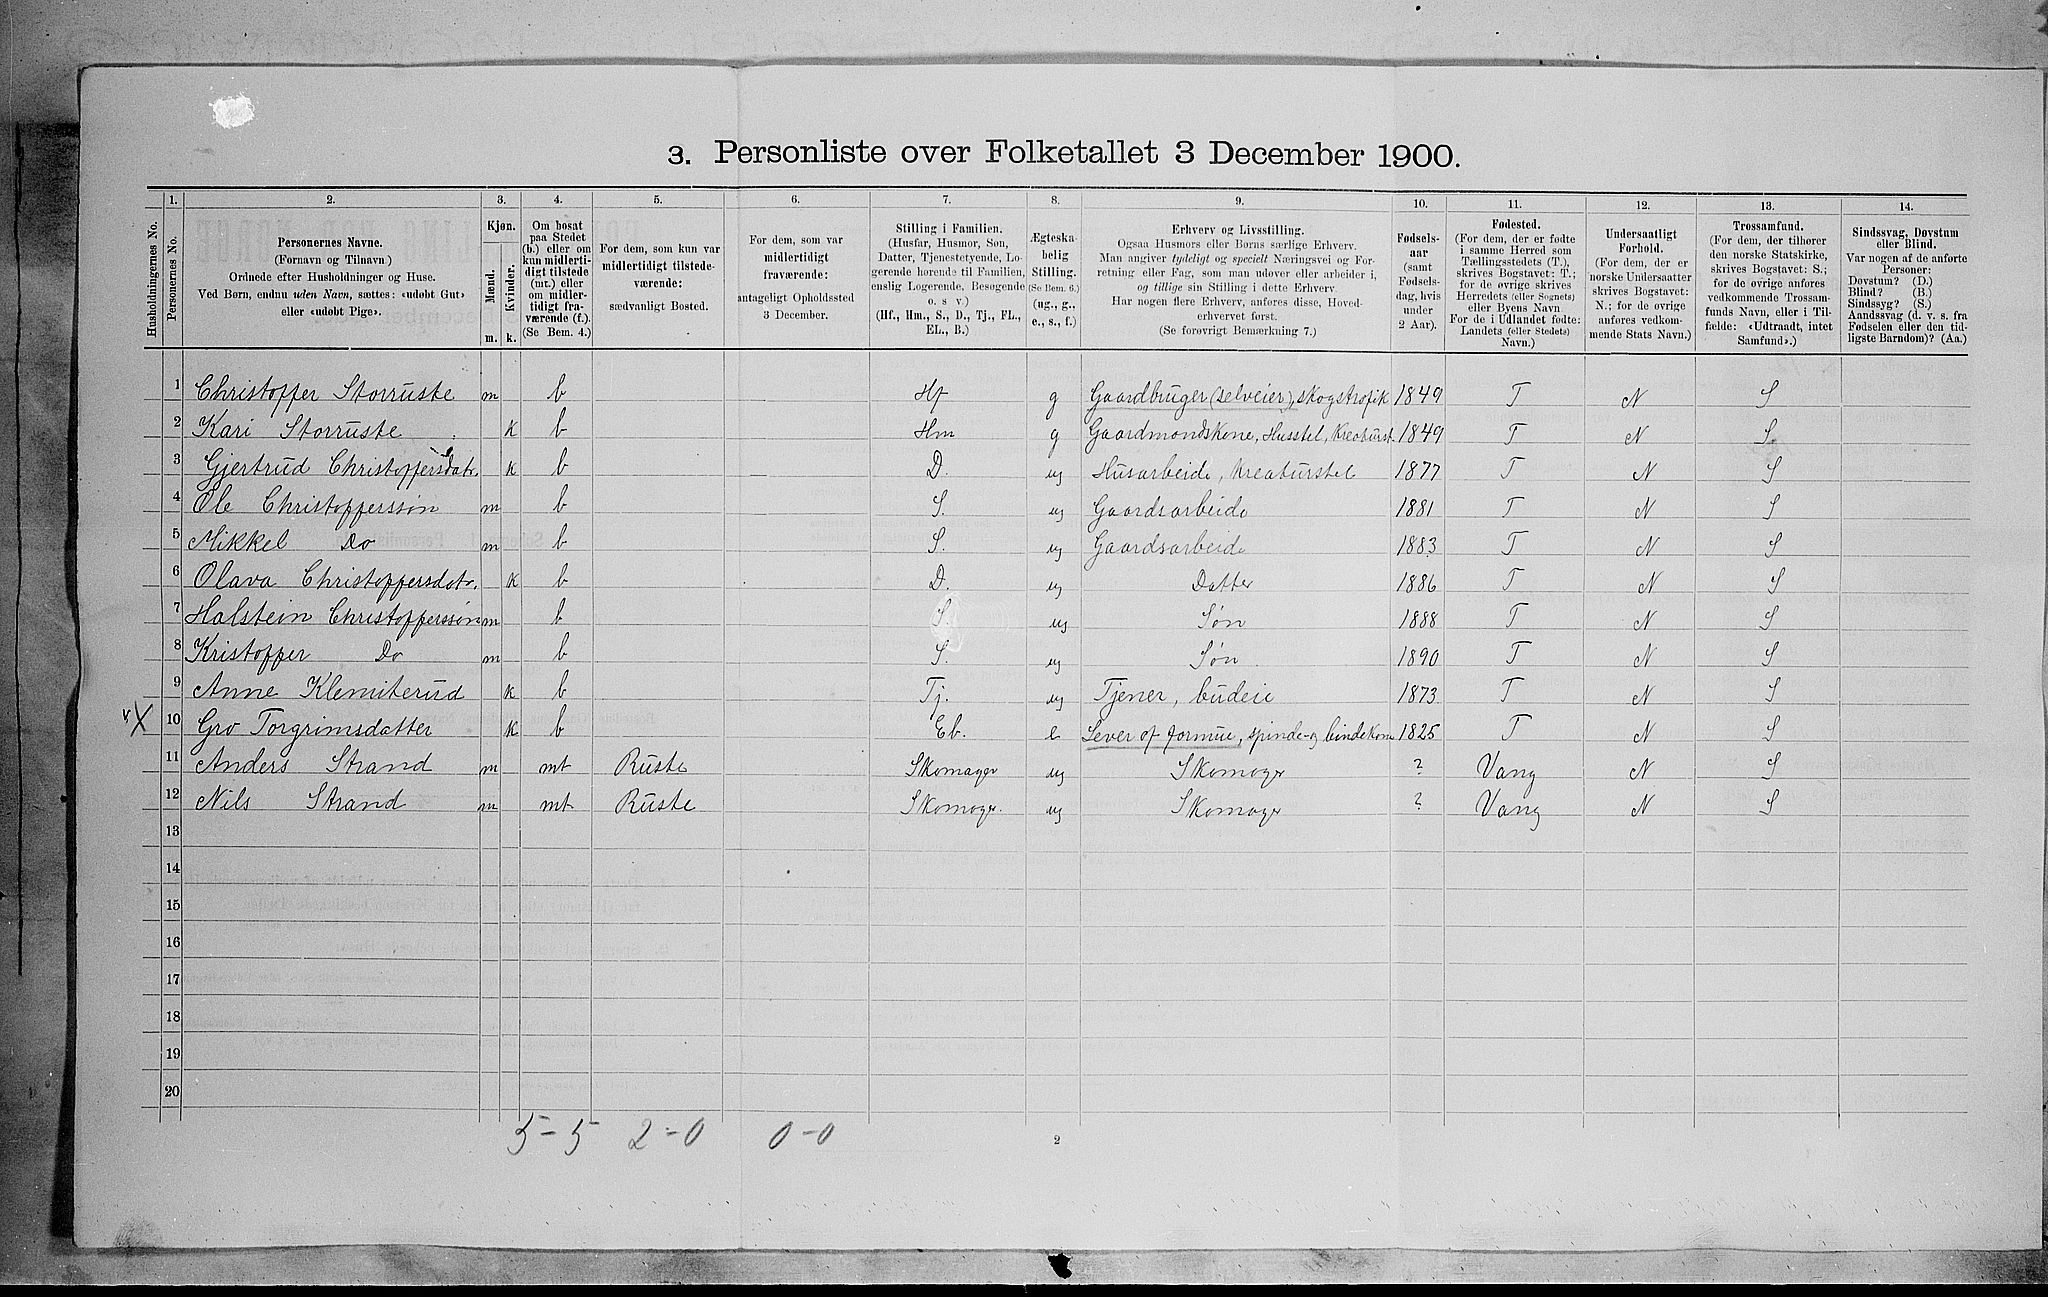 3. Personliste over Folketallet 3 December 1900.
Husholdningernes No.
1. Personernes No.
2. Personernes Navne. (Fornavn og Tilnavn.) Ordnede efter Husholdninger og Huse. Ved Børn, endnu uden Navn, sættes: «udøbt Gut» eller «udøbt Pige».
3. Kjøn. Mænd. m. Kvinder. k.
4. Om bosat paa Stedet (b.) eller om kun midlertidigt tilstede (mt.) eller om midlertidigt fraværende (f.). (Se Bem. 4.)
5. For dem, som kun var midlertidigt tilstedeværende: sædvanligt Bosted.
6. For dem, som var midlertidigt fraværende: antageligt Opholdssted 3 December.
7. Stilling i Familien. (Husfar, Husmor, Søn, Datter, Tjenestetyende, Logerende hørende til Familien, enslig Logerende, Besøgende o. s. v.) (Hf., Hm., S., D., Tj., FL., EL., B.)
8. Ægteskabelig Stilling. (Se Bem. 6.) (ug., g., e., s., f.)
9. Erhverv og Livsstilling. Ogsaa Husmors eller Børns særlige Erhverv. Man angiver tydeligt og specielt Næringsvei og Forretning eller Fag, som man udøver eller arbeider i, og tillige sin Stilling i dette Erhverv. Har nogen flere Erhverv, anføres disse, Hovederhvervet først. (Se forøvrigt Bemærkning 7.)
10. Fødselsaar (samt Fødselsdag, hvis under 2 Aar).
11. Fødested. (For dem, der er fødte i samme Herred som Tællingsstedets (T.), skrives Bogstavet: T.; for de øvrige skrives Herredets (eller Sognets) eller Byens Navn. For de i Udlandet fødte: Landets (eller Stedets) Navn.)
12. Undersaatligt Forhold. (For dem, der er norske Undersaatter skrives Bogstavet: N.; for de øvrige anføres vedkommende Stats Navn.)
13. Trossamfund. (For dem, der tilhører den norske Statskirke, skrives Bogstavet: S.; for de øvrige anføres vedkommende Trossamfunds Navn, eller i Tilfælde: «Udtraadt, intet Samfund».)
14. Sindssvag, Døvstum eller Blind. Var nogen af de anførte Personer: Døvstum? (D.) Blind? (B.) Sindssyg? (S.) Aandssvag (d. v. s. fra Fødselen eller den tidligste Barndom)? (Aa.)
1 Christoffer Storruste m b Hf g Gaardbruger (selveier), skogstrafik 1849 T N S
2 Kari Storruste k b Hm g Gaardmandskone, Husstel, Kreaturst 1849 T N S
3 Gjertrud Christoffersdatr. k b D. ug Husarbeide, Kreaturstel 1877 T N S
4 Ole Christofferssøn m b S. ug Gaardsarbeide 1881 T N S
5 Mikkel Do m b S. ug Gaardsarbeide 1883 T N S
6 Olava Christoffersdatr. k b D. ug Datter 1886 T N S
7 Halstein Christofferssøn m b S. ug Søn 1888 T N S
8 Kristoffer Do m b S. ug Søn 1890 T N S
9 Anne Klemiterud k b Tj. ug Tjener, budeie 1873 T N S
X 10 Gro Torgrimsdatter k b Eb. e Lever af formue, spinde- og bindekone 1825 T N S
11 Anders Strand m mt Ruste Skomager ug Skomager ? Vang N S
12 Nils Strand m mt Ruste Skomager. ug Skomager ? Vang N S
13
14
15
16
17
18
19
20
5-5 2-0 0-0
2